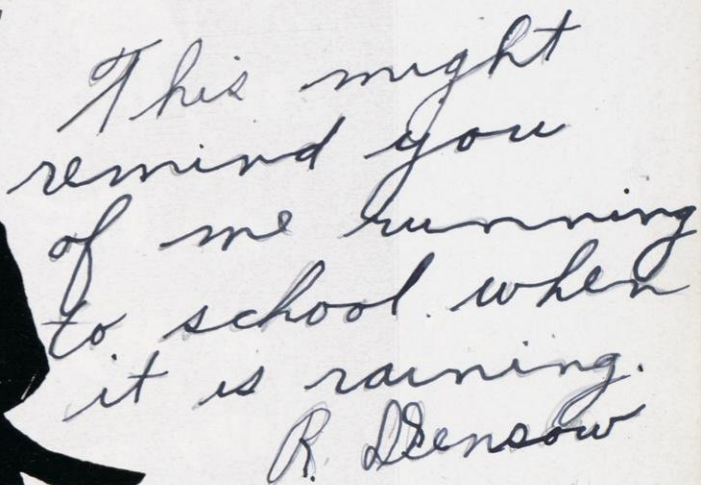 This might
remind you
of me running
to school when
it is raining.
R.